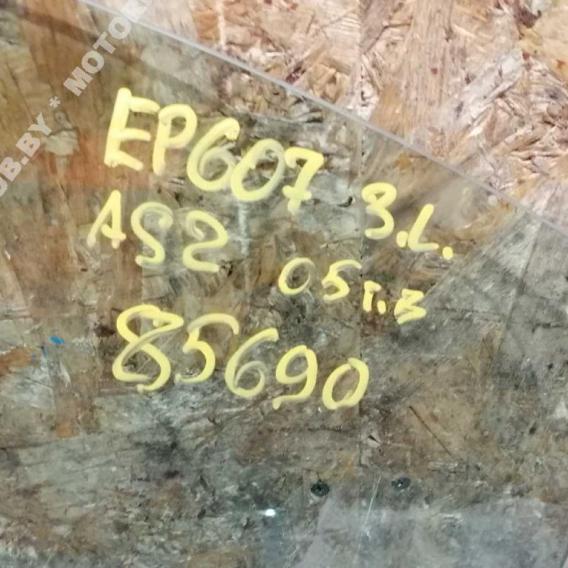 OB.BY * MOTOR
EP607 3.L.
AS2 05г.в
85690